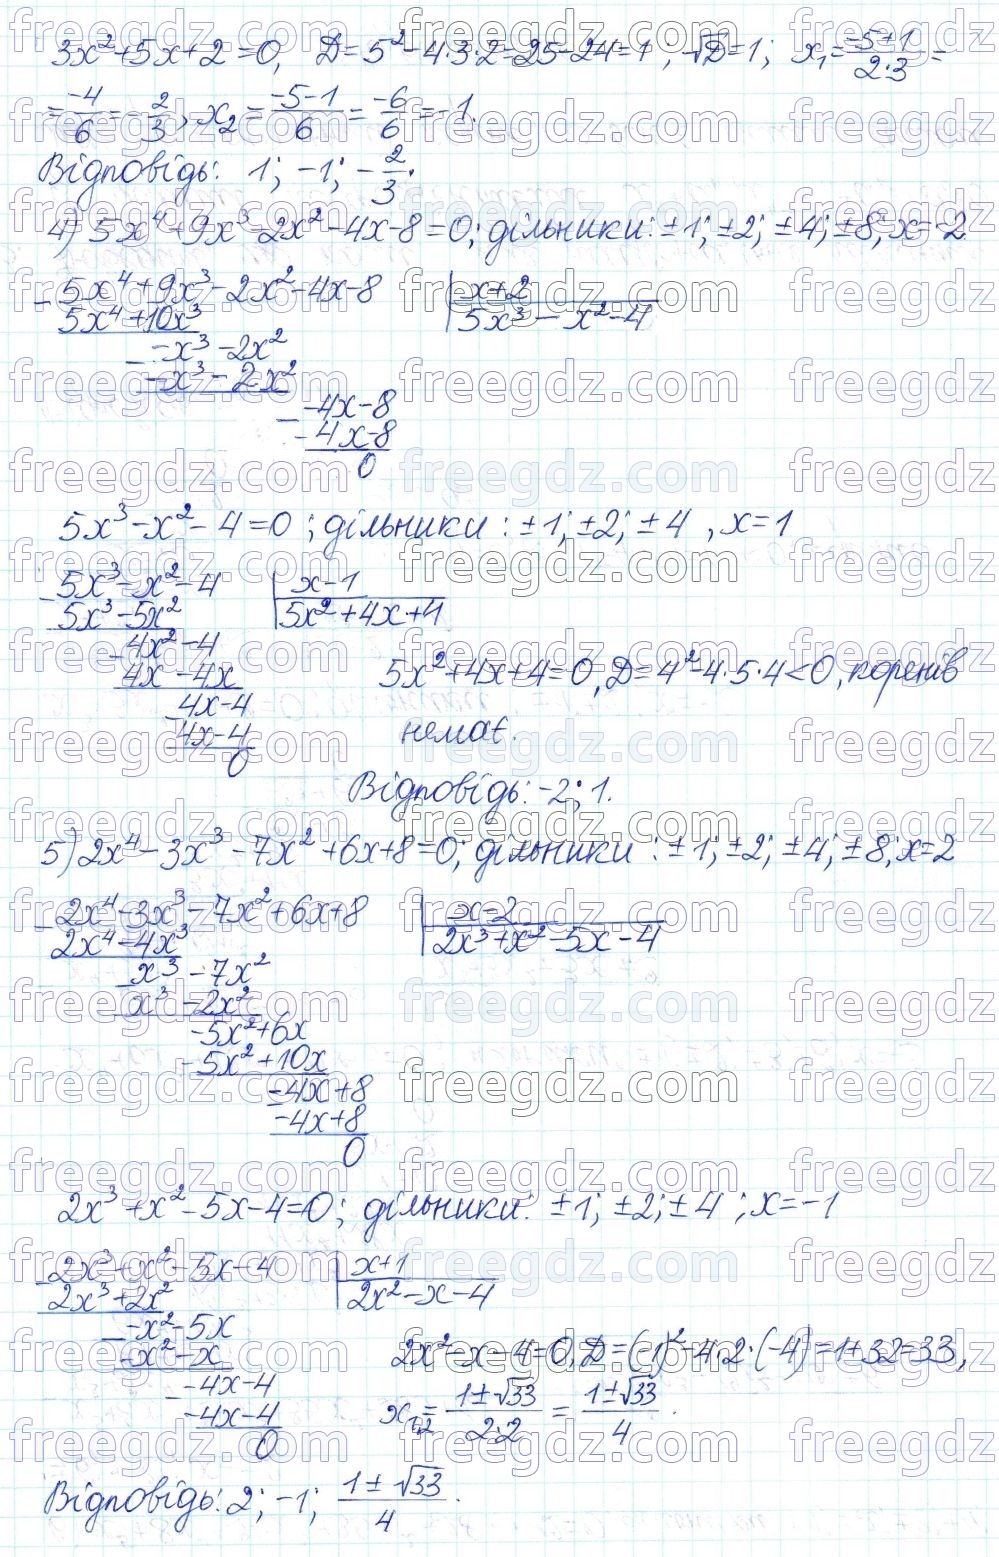 3x²+5x+2=0, D=5²-4·3·2=25-24=1; √D=1; x₁=(-5+1)/(2·3)=
=-4/6=-2/3, x₂=(-5-1)/6=-6/6=-1.
Відповідь: 1; -1; -2/3.
4) 5x⁴+9x³-2x²-4x-8=0; дільники: ±1; ±2; ±4; ±8; x=-2
5x⁴+9x³-2x²-4x-8 | x+2
5x⁴+10x³ | 5x³-x²-4
-x³-2x²
-x³-2x²
-4x-8
-4x-8
0
5x³-x²-4=0; дільники: ±1; ±2; ±4, x=1
5x³-x²-4 | x-1
5x³-5x² | 5x²+4x+4
4x²-4
4x-4x
5x²+4x+4=0, D=4²-4·5·4<0, коренів
4x-4
4x-4
немає.
0
Відповідь: -2; 1.
5) 2x⁴-3x³-7x²+6x+8=0; дільники: ±1; ±2; ±4; ±8; x=2
2x⁴-3x³-7x²+6x+8 | x-2
2x⁴-4x³ | 2x³+x²-5x-4
x³-7x²
x³-2x²
-5x²+6x
-5x²+10x
-4x+8
-4x+8
0
2x³+x²-5x-4=0; дільники: ±1; ±2; ±4; x=-1
2x³+x²-5x-4 | x+1
2x³+2x² | 2x²-x-4
-x²-5x
-x²-x
2x²-x-4=0, D=(-1)²-4·2·(-4)=1+32=33,
-4x-4
-4x-4
x₁,₂=(1±√33)/(2·2)=(1±√33)/4.
0
Відповідь: 2; -1; (1±√33)/4.
freegdz.com